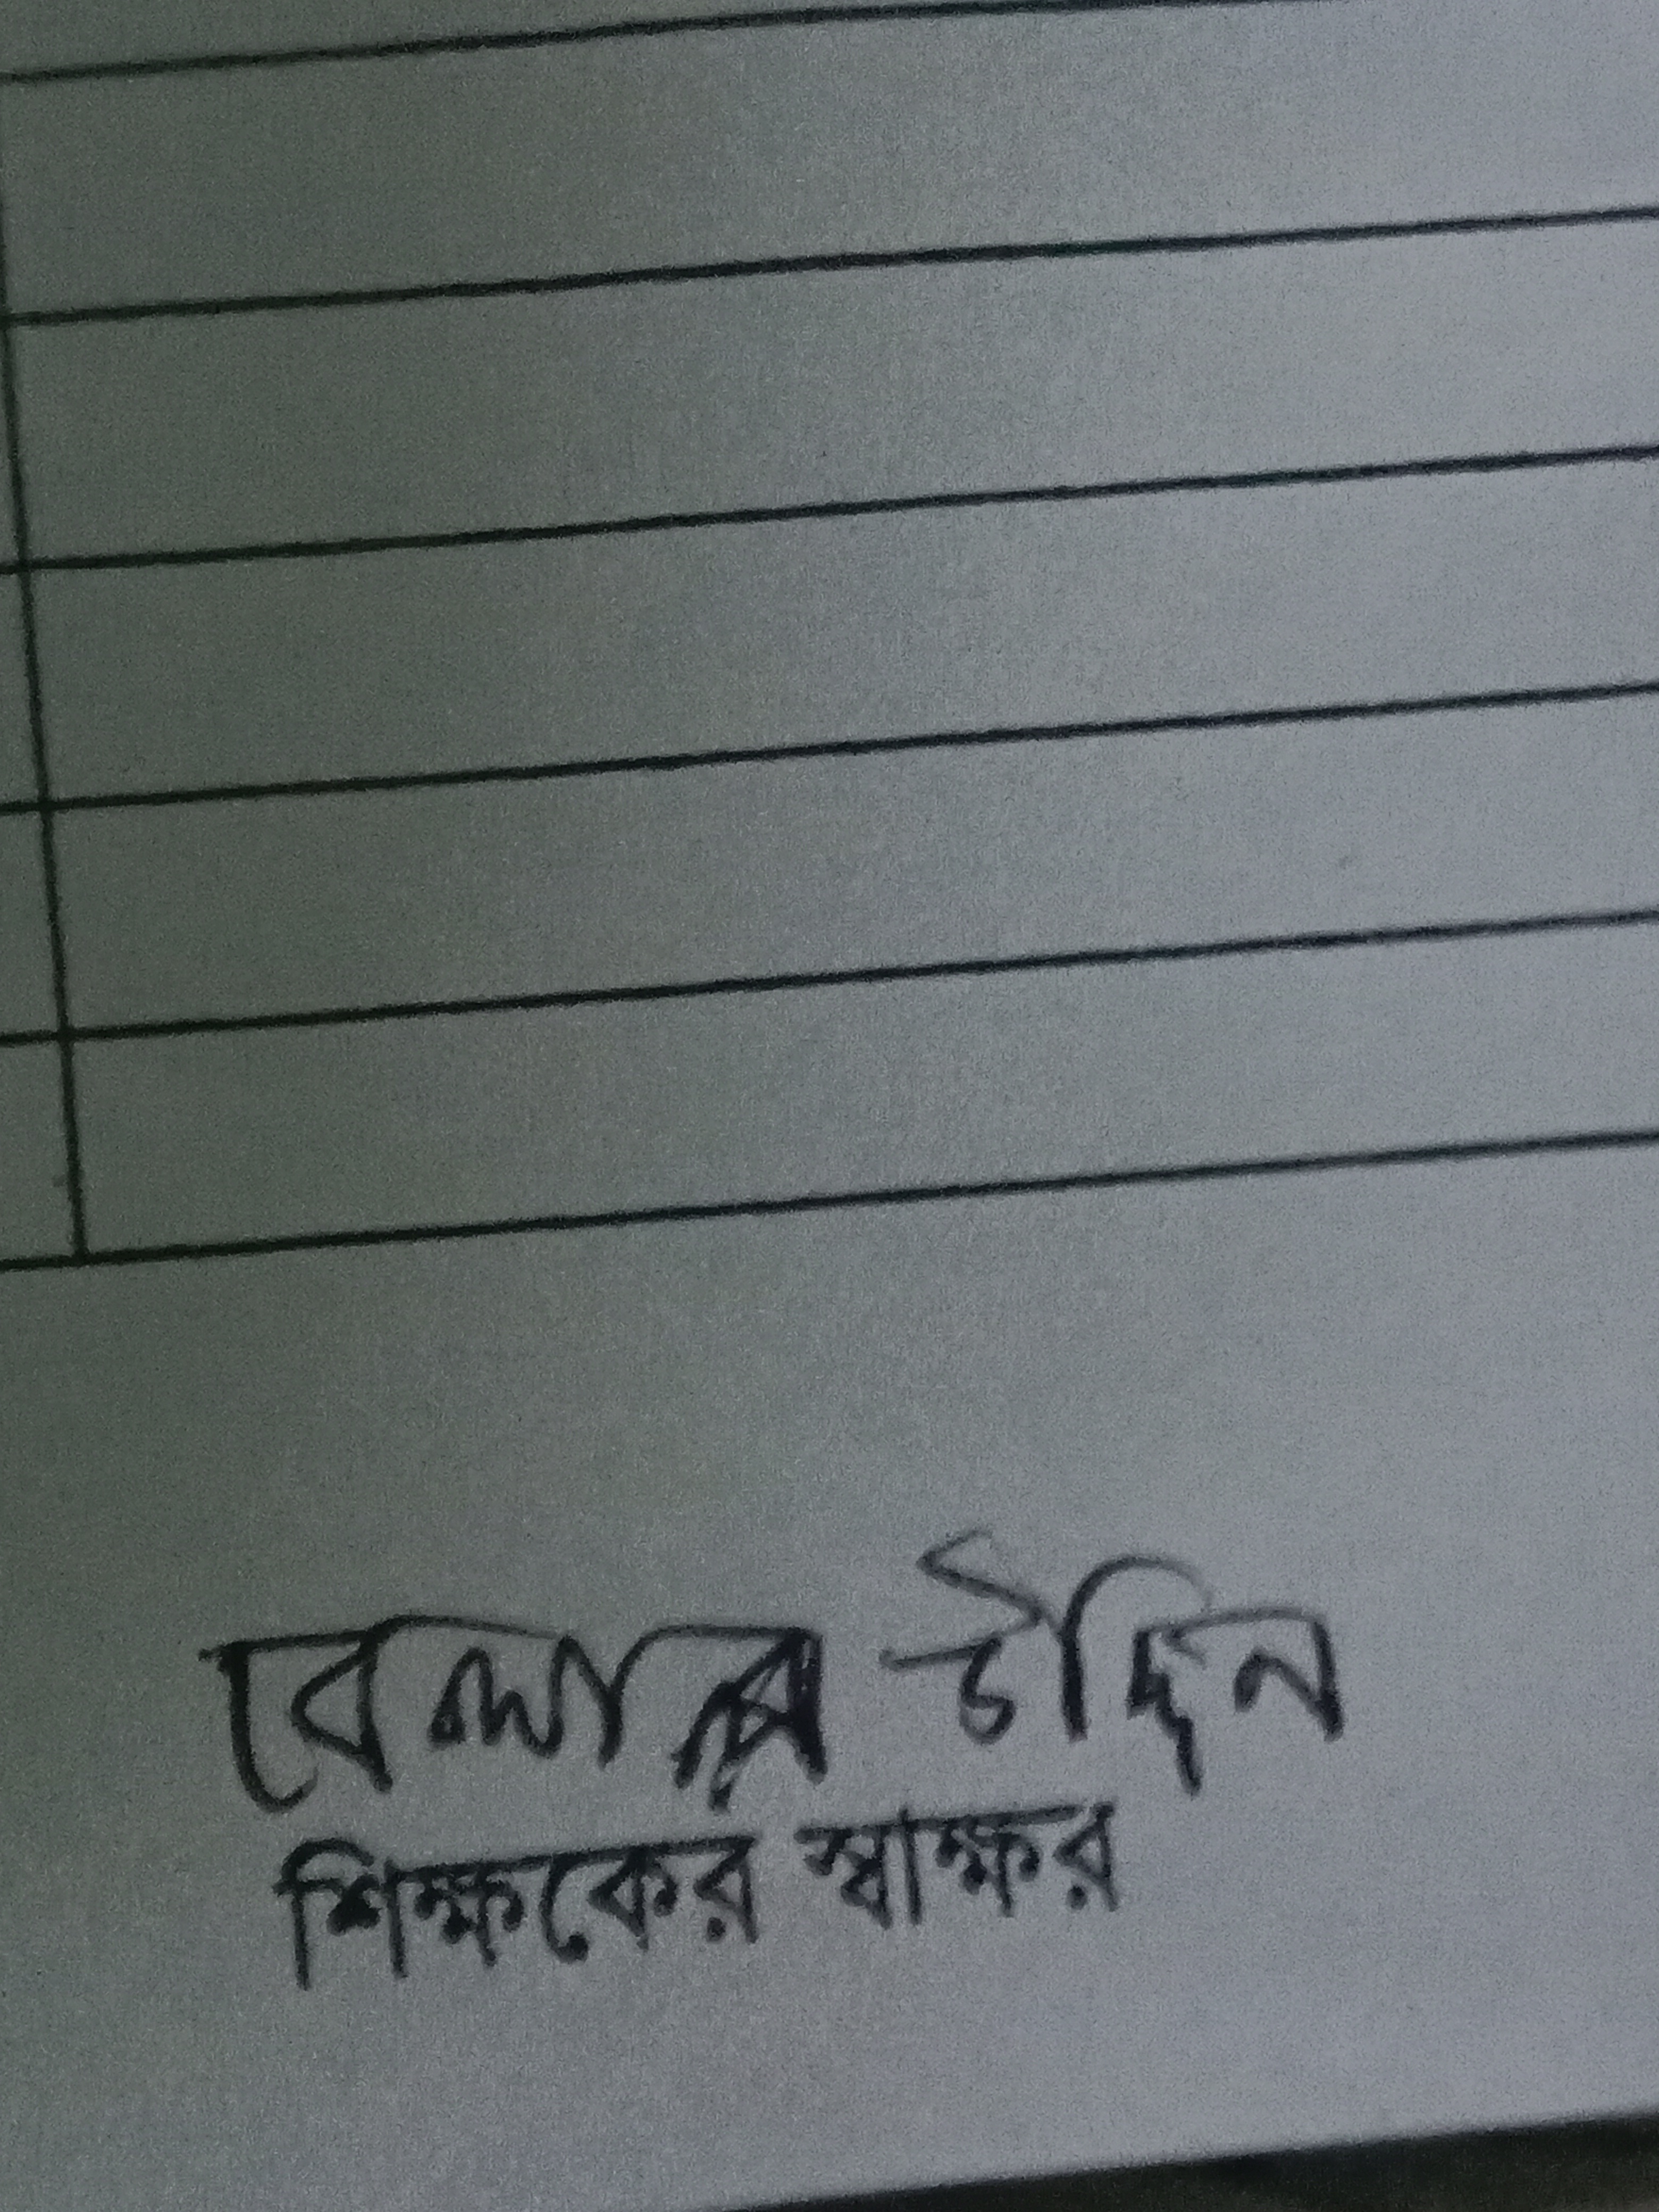 বেলাল উদ্দিন
শিক্ষকের স্বাক্ষর